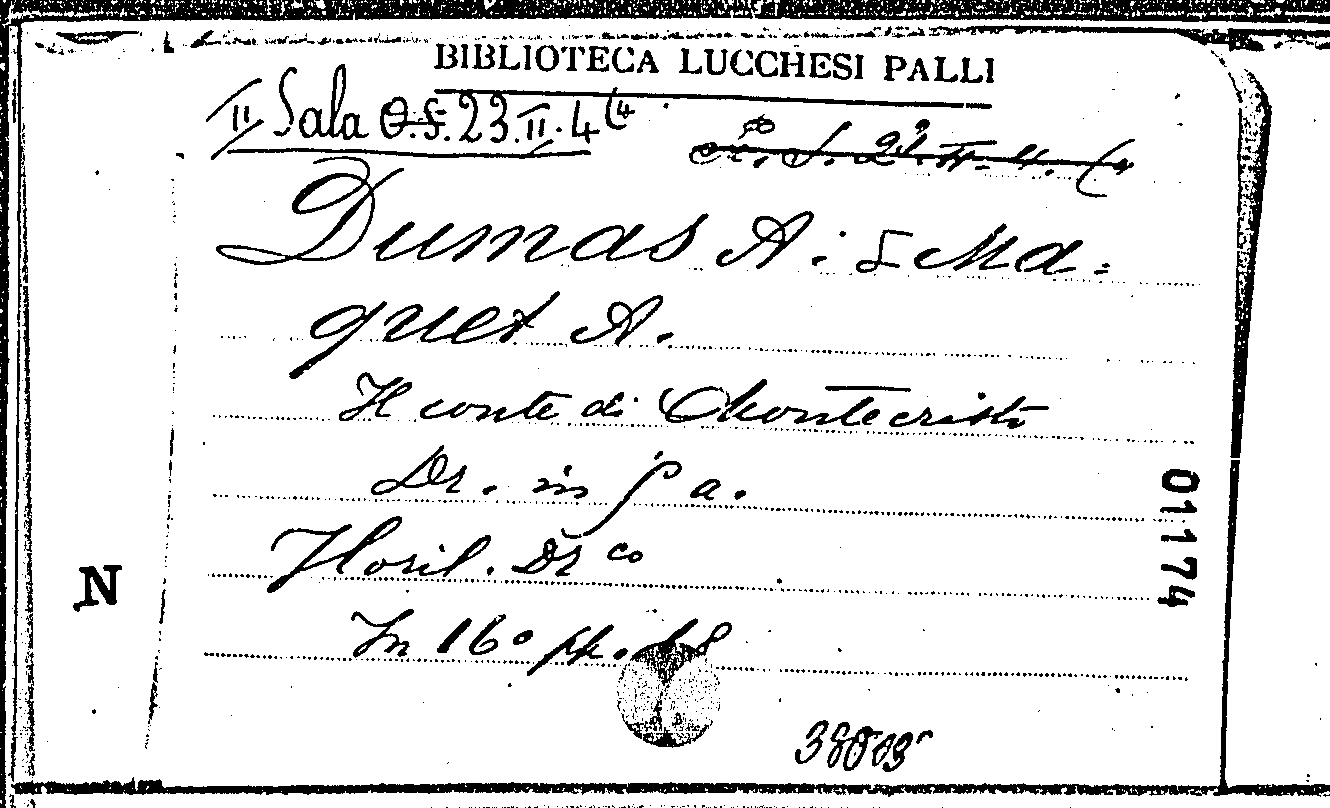 BIBLIOTECA LUCCHESI PALLI
II Sala O.S. 23.II.4(4
S. 23. II. 4. (4
Dumas A. & Ma=
quet A.
Il conte di Montecristo
Dr. in 5 a.
Floril. Dr co
In 16° pp.
N
01174